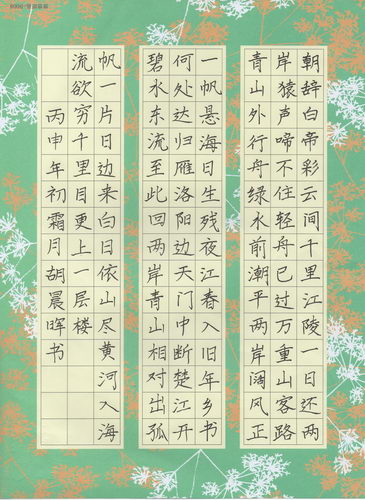 朝辞白帝彩云间千里江陵一日还两
岸猿声啼不住轻舟已过万重山客路
青山外行舟绿水前潮平两岸阔风正
一帆悬海日生残夜江春入旧年乡书
何处达归雁洛阳边天门中断楚江开
碧水东流至此回两岸青山相对出孤
帆一片日边来白日依山尽黄河入海
流欲穷千里目更上一层楼
丙申年初霜月胡晨晖书